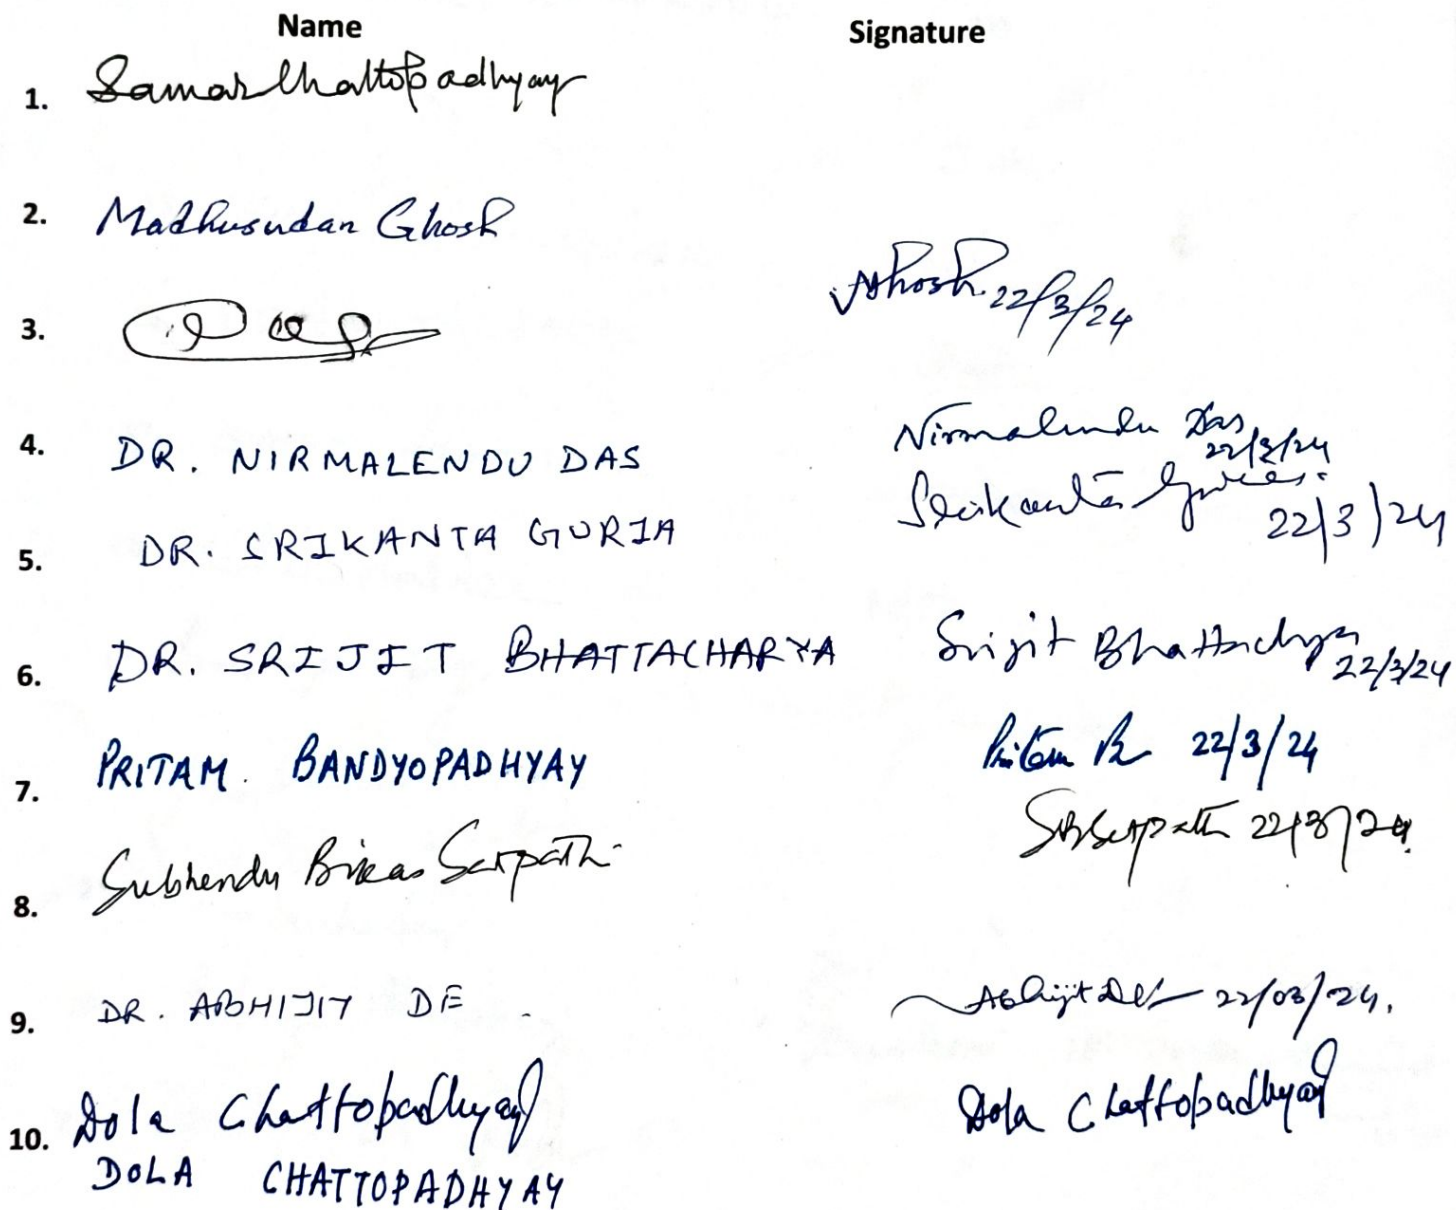 Name Signature
1. Samar Chattopadhyay
2. Madhusudan Ghosh
Ghosh 22/3/24
3.
4. DR. NIRMALENDU DAS Nirmalendu Das 22/3/24
5. DR. SRIKANTA GURIA Srikanta Guria 22/3/24
6. DR. SRIJIT BHATTACHARYA Srijit Bhattacharya 22/3/24
7. PRITAM BANDYOPADHYAY Pritam 22/3/24
8. Subhendu Bikas Satpathi SBSatpathi 22/3/24.
9. DR. ABHIJIT DE Abhijit De 22/03/24.
10. Dola Chattopadhyay Dola Chattopadhyay
DOLA CHATTOPADHYAY